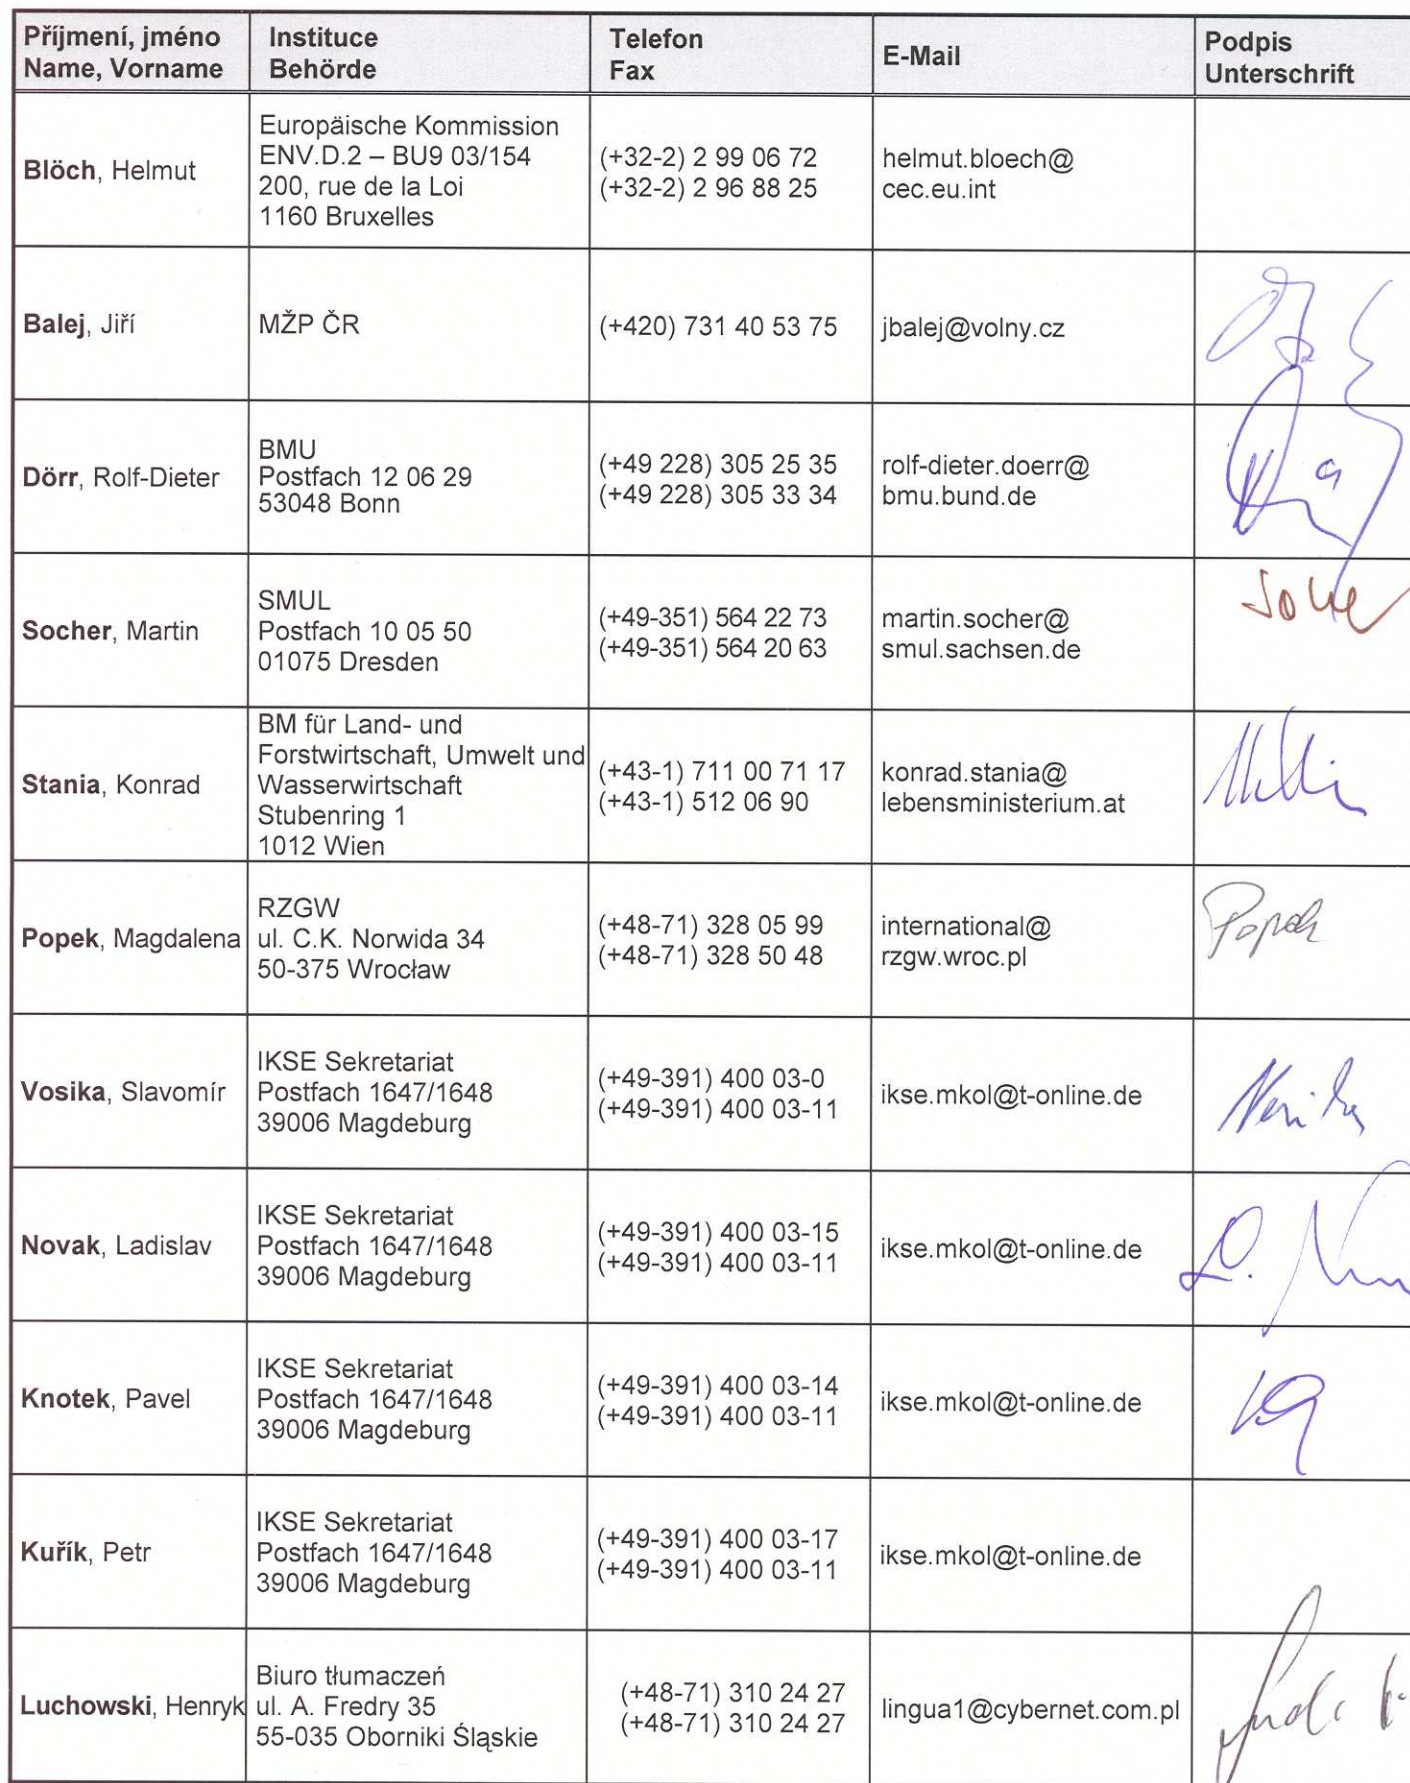 Příjmení, jméno
Name, Vorname
Instituce
Behörde
Telefon
Fax
E-Mail
Podpis
Unterschrift
Blöch, Helmut
Europäische Kommission
ENV.D.2 – BU9 03/154
200, rue de la Loi
1160 Bruxelles
(+32-2) 2 99 06 72
(+32-2) 2 96 88 25
helmut.bloech@
cec.eu.int
Balej, Jiří
MŽP ČR
(+420) 731 40 53 75
jbalej@volny.cz
Dörr, Rolf-Dieter
BMU
Postfach 12 06 29
53048 Bonn
(+49 228) 305 25 35
(+49 228) 305 33 34
rolf-dieter.doerr@
bmu.bund.de
Socher, Martin
SMUL
Postfach 10 05 50
01075 Dresden
(+49-351) 564 22 73
(+49-351) 564 20 63
martin.socher@
smul.sachsen.de
Stania, Konrad
BM für Land- und
Forstwirtschaft, Umwelt und
Wasserwirtschaft
Stubenring 1
1012 Wien
(+43-1) 711 00 71 17
(+43-1) 512 06 90
konrad.stania@
lebensministerium.at
Popek, Magdalena
RZGW
ul. C.K. Norwida 34
50-375 Wrocław
(+48-71) 328 05 99
(+48-71) 328 50 48
international@
rzgw.wroc.pl
Popek
Vosika, Slavomír
IKSE Sekretariat
Postfach 1647/1648
39006 Magdeburg
(+49-391) 400 03-0
(+49-391) 400 03-11
ikse.mkol@t-online.de
Novak, Ladislav
IKSE Sekretariat
Postfach 1647/1648
39006 Magdeburg
(+49-391) 400 03-15
(+49-391) 400 03-11
ikse.mkol@t-online.de
Knotek, Pavel
IKSE Sekretariat
Postfach 1647/1648
39006 Magdeburg
(+49-391) 400 03-14
(+49-391) 400 03-11
ikse.mkol@t-online.de
Kuřík, Petr
IKSE Sekretariat
Postfach 1647/1648
39006 Magdeburg
(+49-391) 400 03-17
(+49-391) 400 03-11
ikse.mkol@t-online.de
Luchowski, Henryk
Biuro tłumaczeń
ul. A. Fredry 35
55-035 Oborniki Śląskie
(+48-71) 310 24 27
(+48-71) 310 24 27
lingua1@cybernet.com.pl